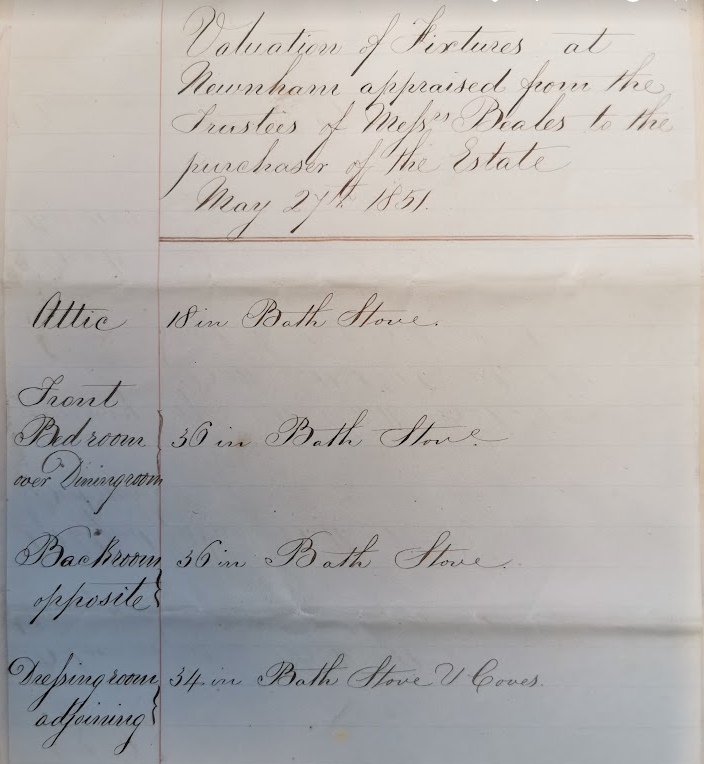 Valuation of Fixtures at
Newnham appraised from the
Trustees of Messrs Beales to the
purchaser of the Estate
May 27th 1851.
Attic 18 in Bath Stove.
Front
Bedroom 36 in Bath Stove.
over Diningroom
Backroom 36 in Bath Stove.
opposite
Dressingroom 34 in Bath Stove & Coves.
adjoining